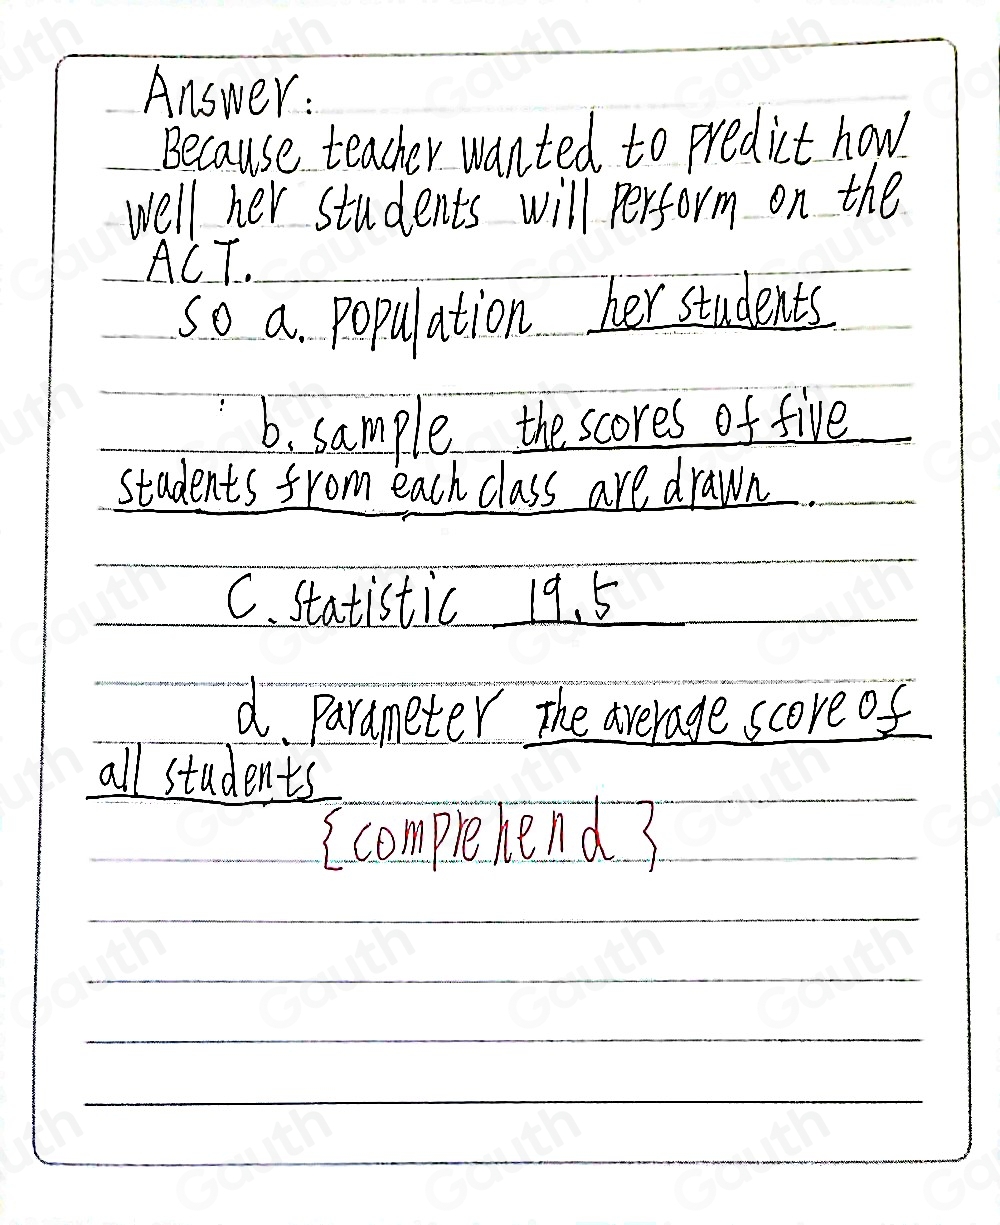 Answer:
Because teacher wanted to predict how
well her students will perform on the
ACT.
so a. population her students
b. sample the scores of five
students from each class are drawn.
C. statistic 19.5
d. parameter The average score of
all students
{comprehend}